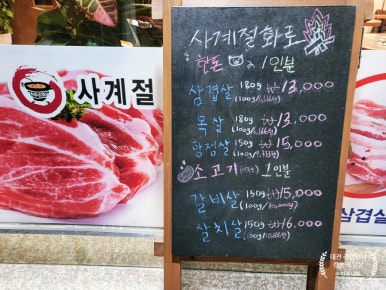 사계절
사계절화로
한돈 1인분
삼겹살 180g ₩13,000
목살 180g ₩13,000
항정살 150g ₩15,000
소고기 1인분
갈비살 150g ₩15,000
(100g/10,000원)
살치살 150g ₩16,000
삼겹살